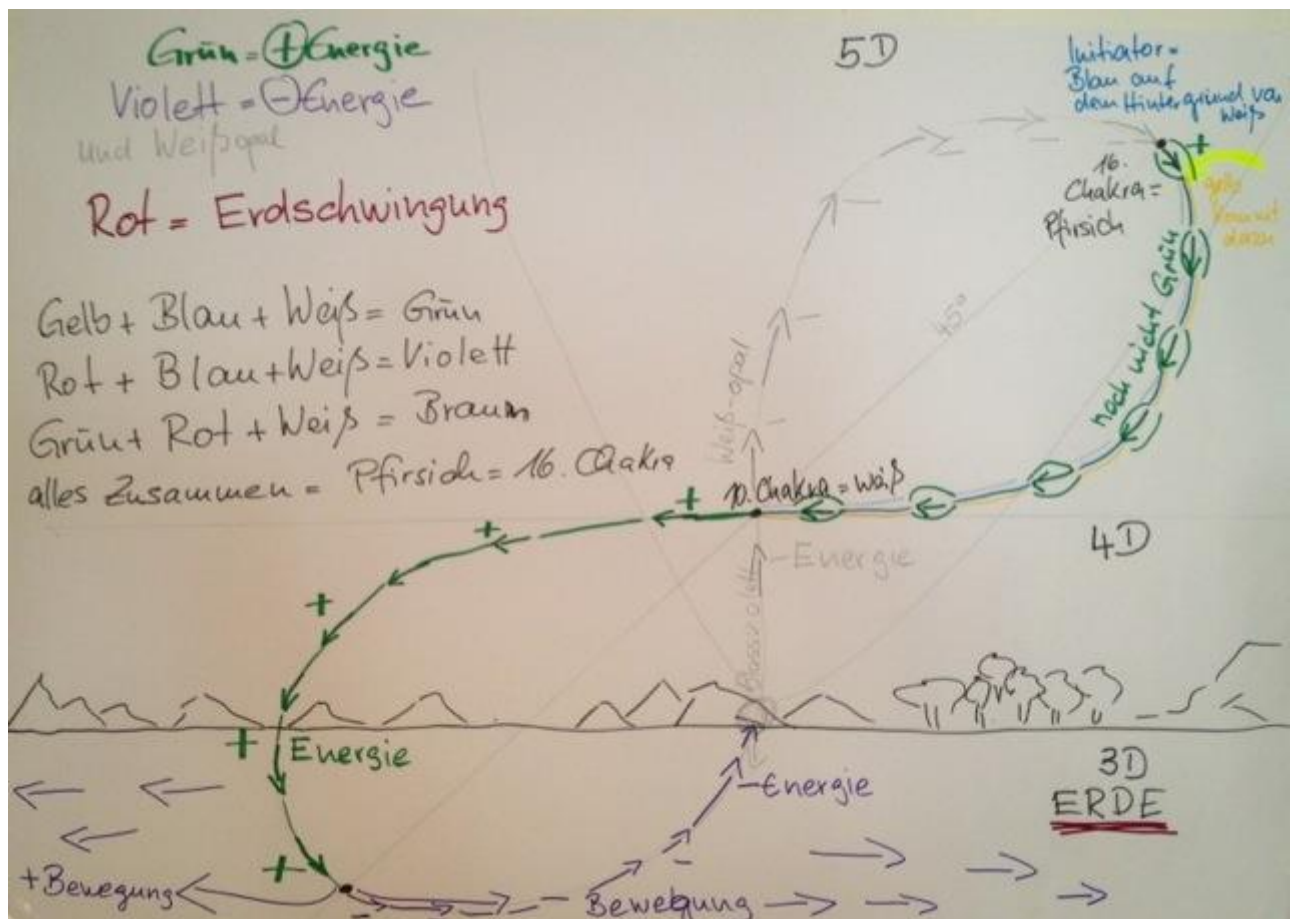 Grün = ⊕ Energie
Violett = ⊖ Energie
und Weißopal
Rot = Erdschwingung
Gelb + Blau + Weiß = Grün
Rot + Blau + Weiß = Violett
Grün + Rot + Weiß = Braun
alles zusammen = Pfirsich = 16. Chakra
5D
Initiator =
Blau auf
dem Hintergrund von
Weiß
+
16.
Chakra =
Pfirsich
gelb
kommt
dazu
noch nicht Grün
45°
Weiß-opal
10. Chakra = weiß
+
+
+
4D
- Energie
+
Energie
- Energie
3D
ERDE
+
+ Bewegung
- Bewegung